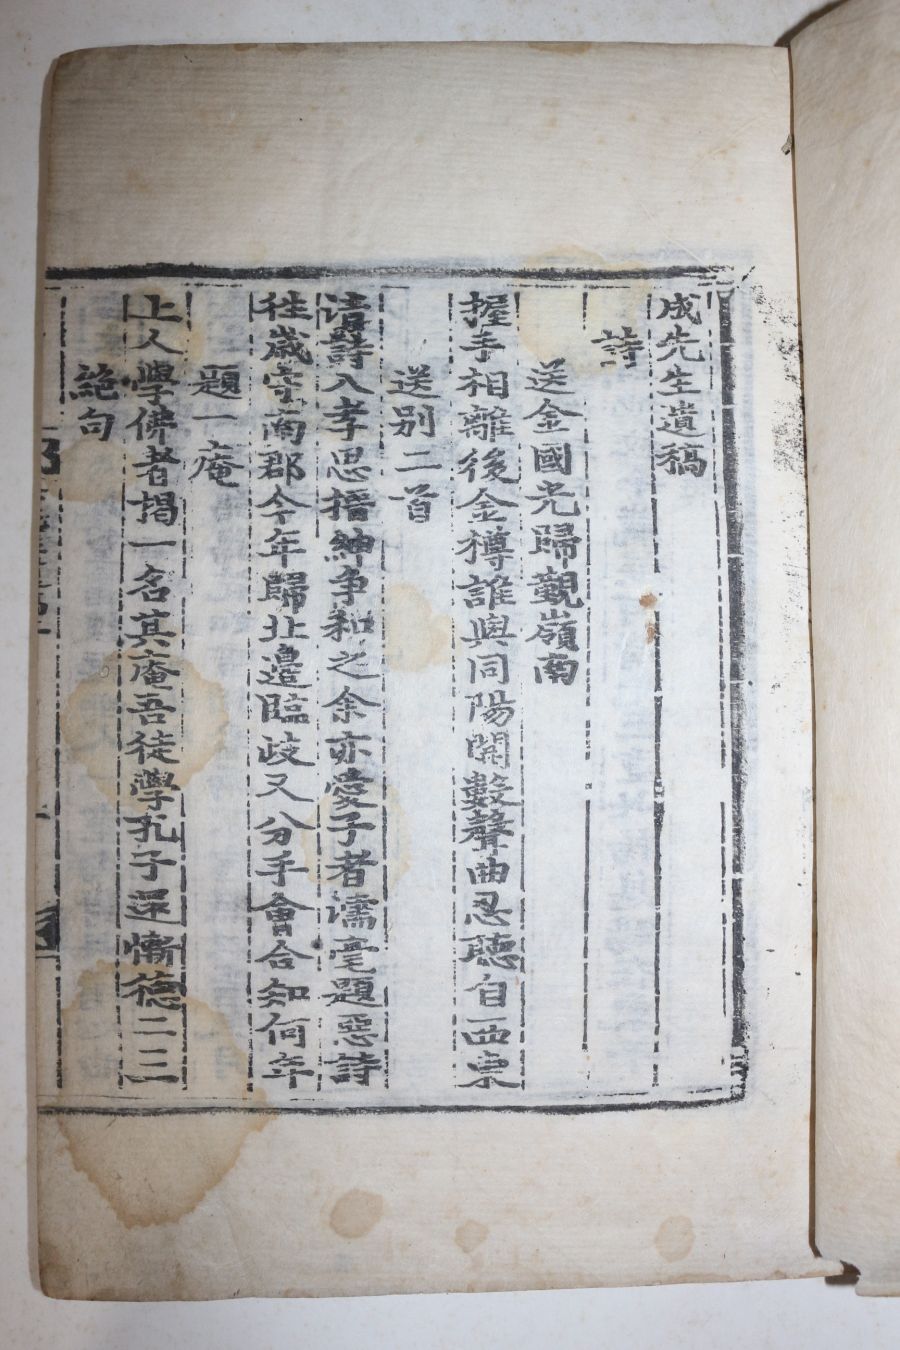 成先生遺稿
詩
送金國光歸觀嶺南
握手相離後金樽誰與同陽關數聲曲忍聽自西東
送別二首
清詩入孝思搢紳爭和之余亦愛子者濡毫題惡詩
徃歲守南郡今年歸北邊臨歧又分手會合知何年
題一庵
上人學佛者揭一名其庵吾徒學孔子還慚德二三
絶句